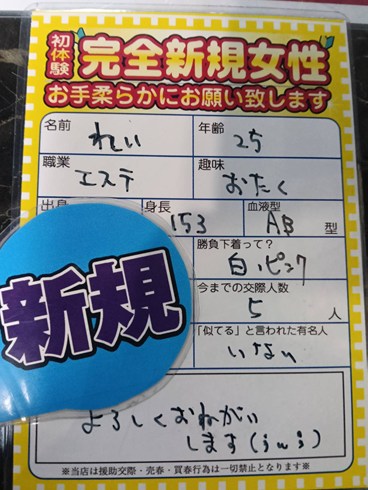 初体験
完全新規女性
お手柔らかにお願い致します
名前 れい 年齢 25
職業 エステ 趣味 おたく
出身 身長 153 血液型 AB 型
勝負下着って? 白、ピンク
新規
今までの交際人数
5 人
「似てる」と言われた有名人
いない
よろしくおねがい
します(;w;)
※当店は援助交際・売春・買春行為は一切禁止となります※